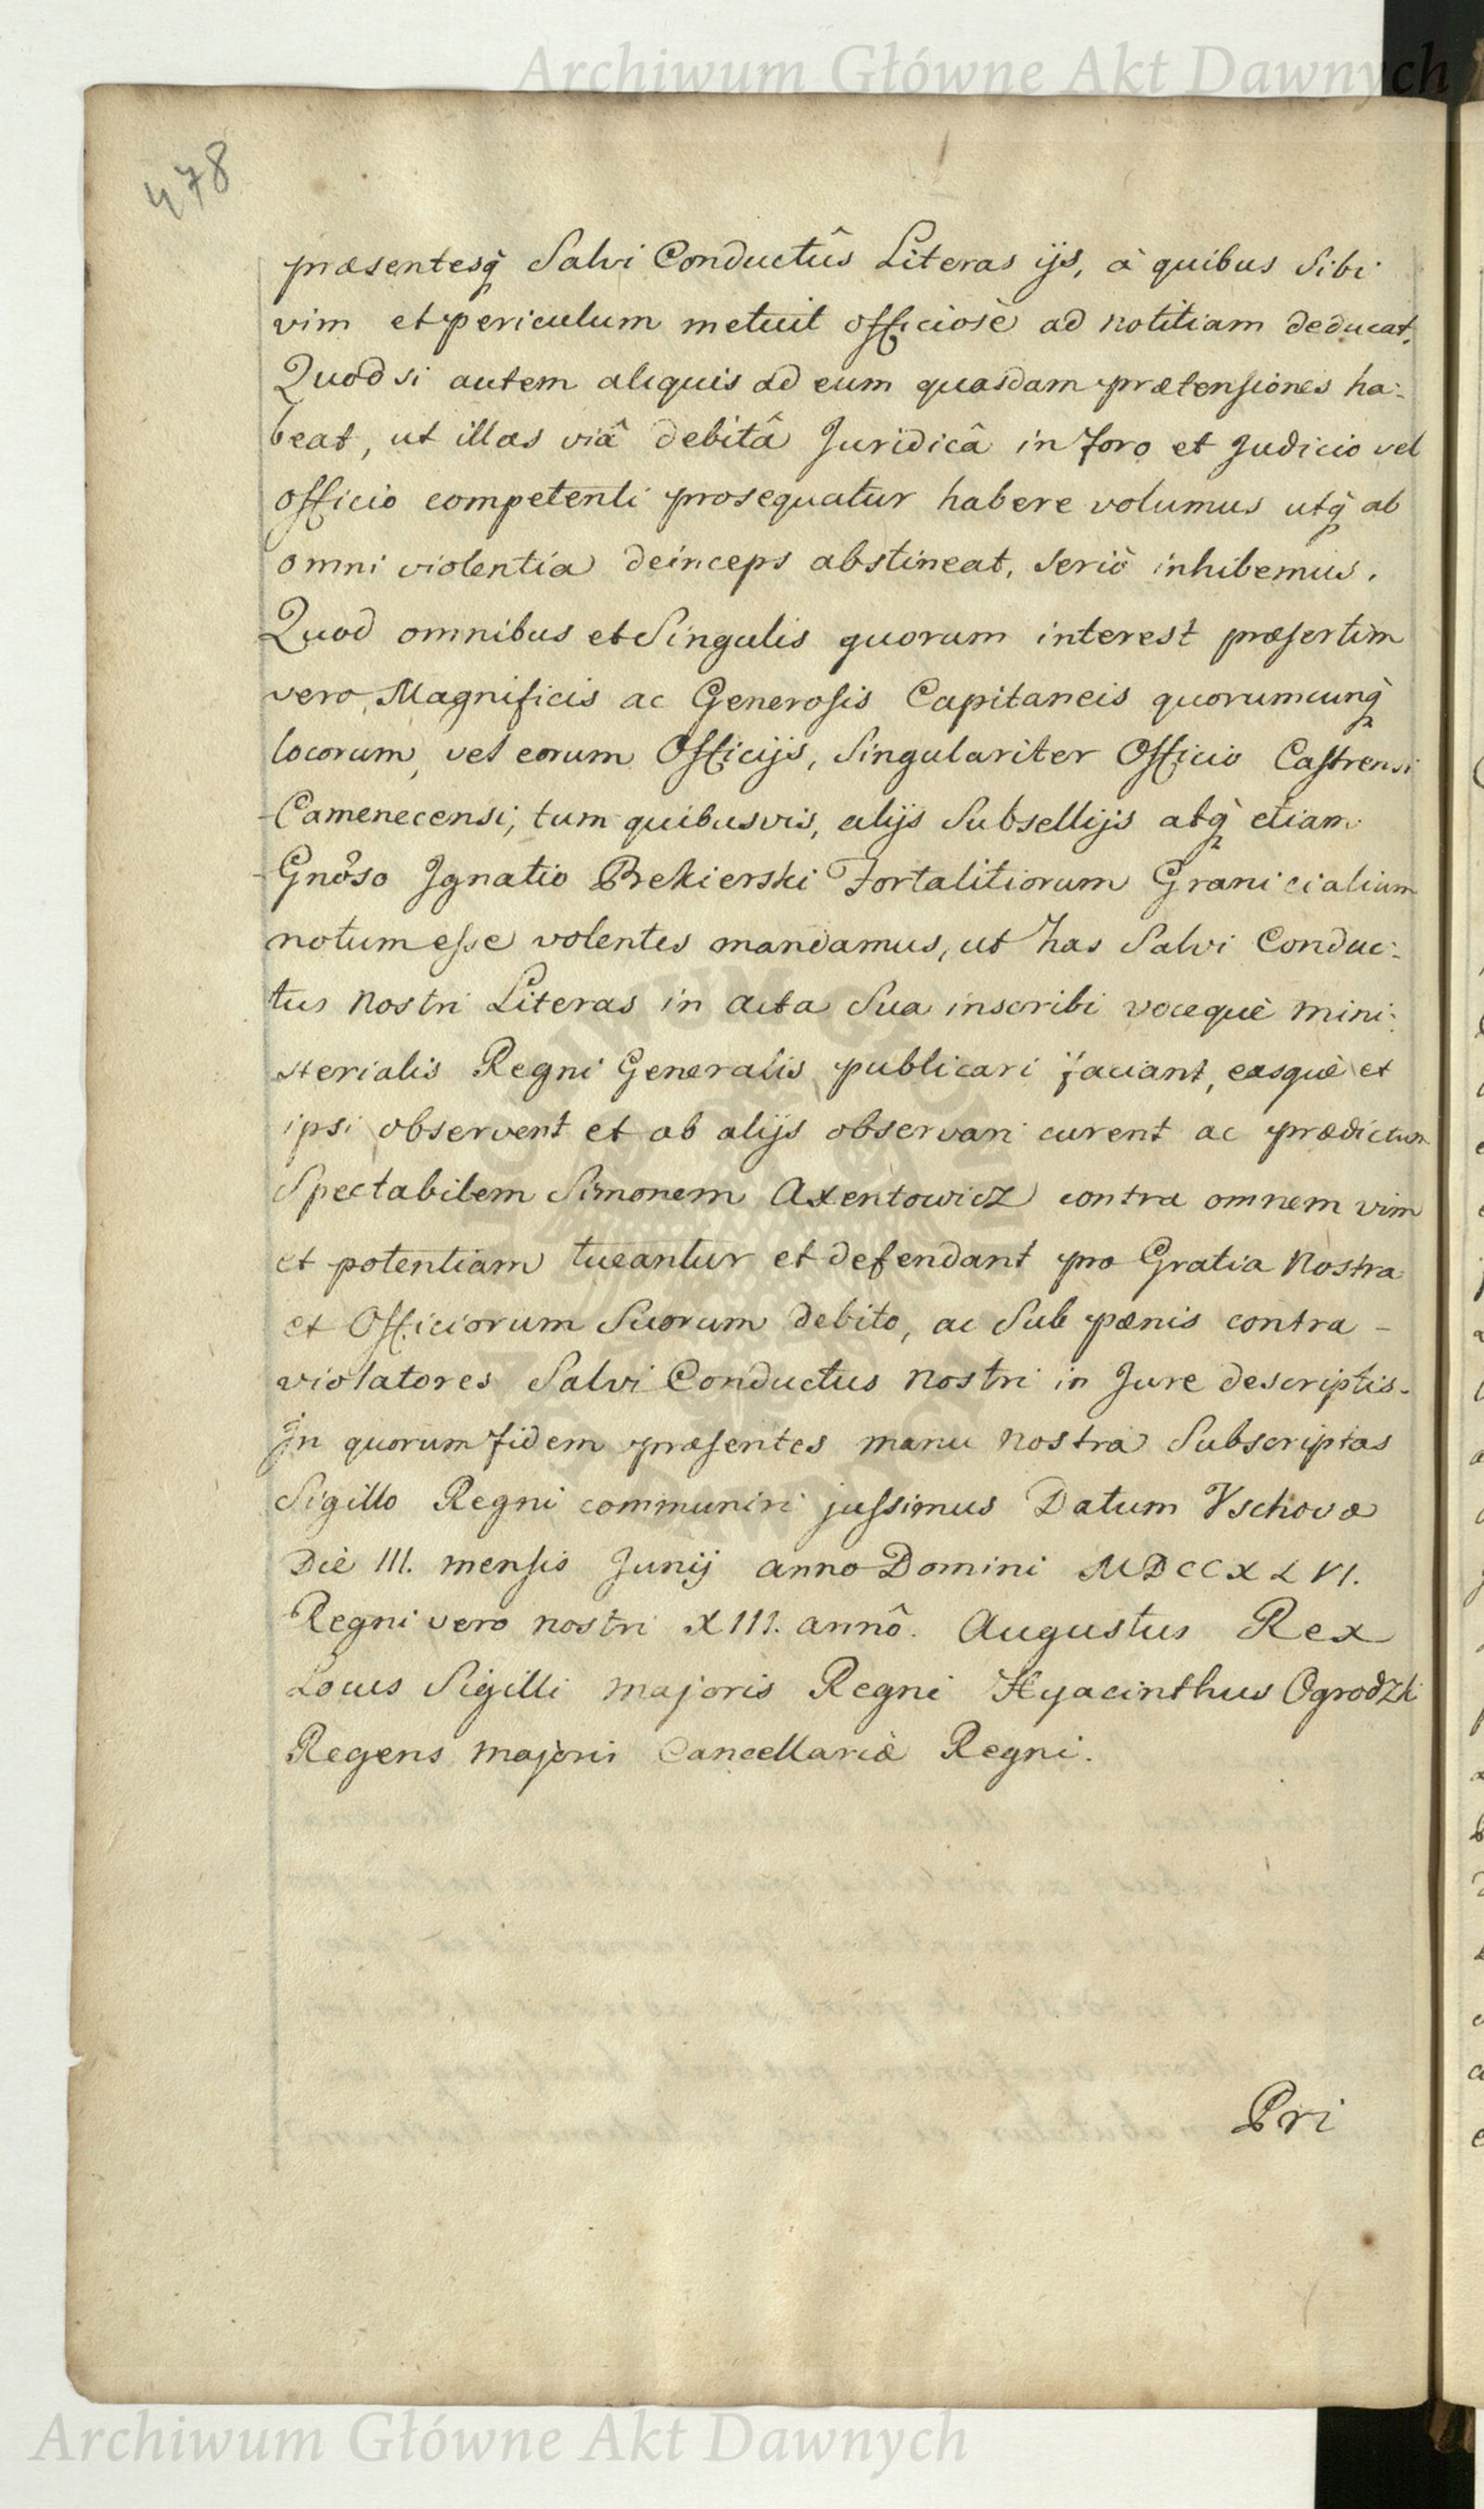 Archiwum Główne Akt Dawnych
478
præsentesq̀ Salvi Conductûs Literas ijs, à quibus Sibi
vim et periculum metuit officiosè ad notitiam deducat.
Quodsi autem aliquis ad eum quasdam prætensiones ha:
beat, ut illas viâ debitâ Juridicâ in Foro et Judicio vel
officio competenti prosequatur habere volumus utq̀ ab
omni violentia deinceps abstineat, Seriò inhibemus.
Quod omnibus et Singulis quorum interest præsertim
vero Magnificis ac Generosis Capitaneis quorumcunq̀
locorum, vel eorum Officijs, Singulariter Officio Castrensi
Camenecensi, tum quibusvis, alijs Subsellijs atq̀ etiam
Gnôso Jgnatio Bekierski Fortalitiorum Granicialium
notum esse volentes mandamus, ut has Salvi Conduc:
tus Nostri Literas in acta Sua inscribi vocequè mini:
sterialis Regni Generalis publicari faciant, easquè et
ipsi observent et ab alijs observari curent ac prædictum
Spectabilem Simonem Axentowicz contra omnem vim
et potentiam tueantur et defendant pro Gratia Nostra
et Officiorum Suorum debito, ac Sub pænis contra -
violatores Salvi Conductus Nostri in Jure descriptis.
Jn quorum fidem præsentes manu Nostra Subscriptas
Sigillo Regni communiri jussimus Datum Vschovæ
Diè III. mensis Junij anno Domini MDCCXLVI.
Regni vero nostri XIII. annô. Augustus Rex
Locus Sigilli majoris Regni Hyacinthus Ogrodzki
Regens majoris Cancellariæ Regni.
Pri
Archiwum Główne Akt Dawnych